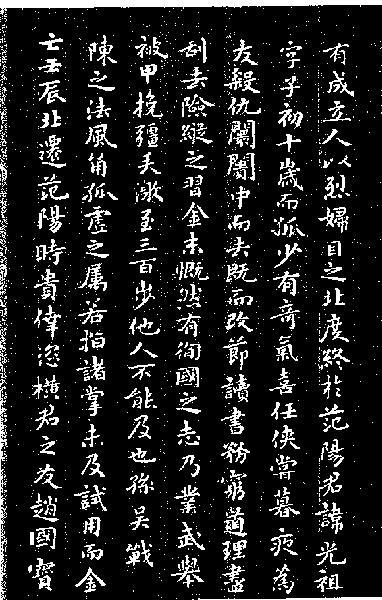 有成立人以烈婦目之北度終於范陽君諱光祖
字子初十歲而孤少有奇氣喜任俠嘗暮夜為
友殺仇闤闠中而去既而改節讀書務窮道理盡
刮去險蹤之習金末慨然有徇國之志乃業武舉
被甲挽彊矢激至三百步他人不能及也孫吳戰
陳之法風角孤虛之属若指諸掌未及試用而金
亡壬辰北還范陽時貴倖恣橫君之友趙國寶